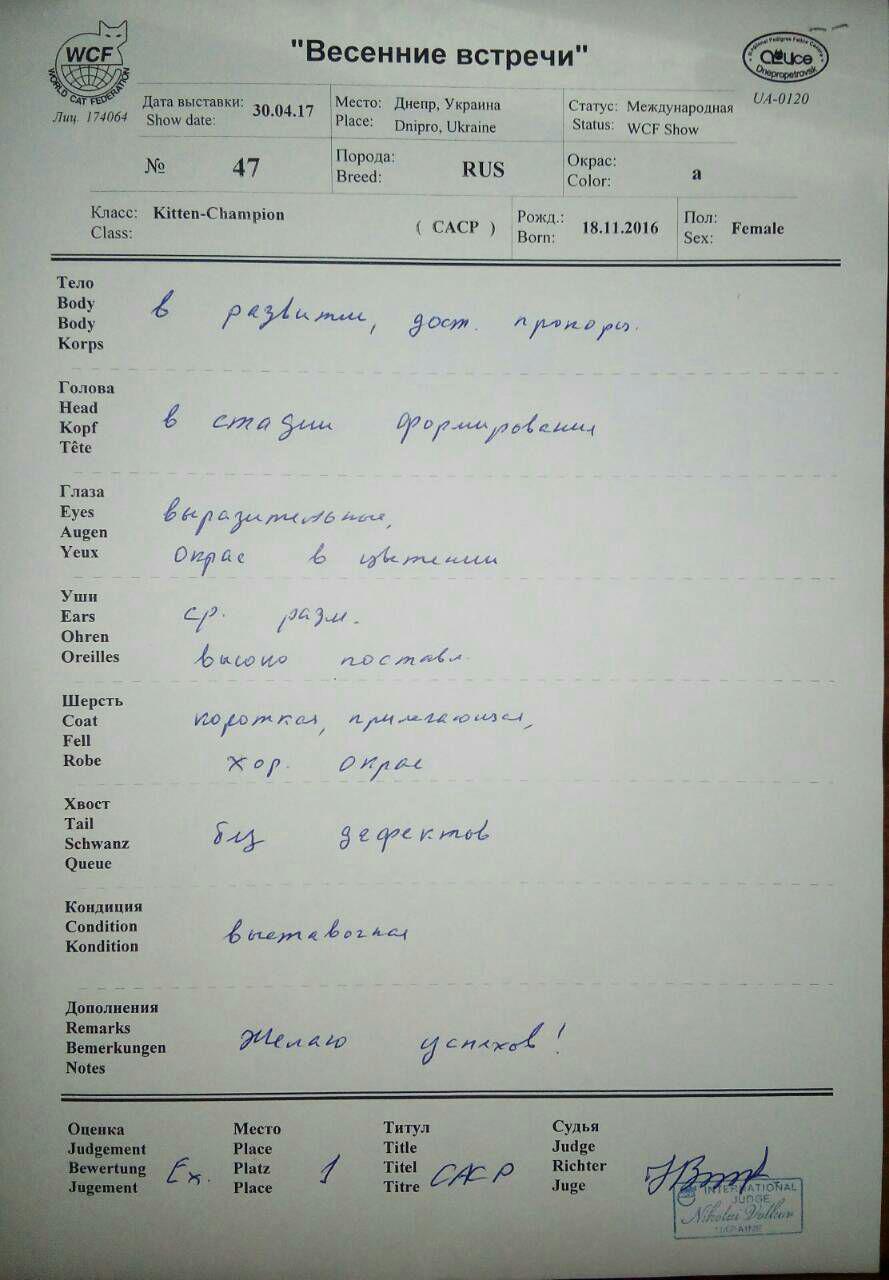 "Весенние встречи"
WCF
WORLD CAT FEDERATION
Лиц. 174064
Regional Pedigree Feline Centre
Dnepropetrovsk
UA-0120
Дата выставки: 30.04.17
Show date:
Место: Днепр, Украина
Place: Dnipro, Ukraine
Статус: Международная
Status: WCF Show
№ 47
Порода: RUS
Breed:
Окрас: a
Color:
Класс: Kitten-Champion
Class: ( CACP )
Рожд.: 18.11.2016
Born:
Пол: Female
Sex:
Тело
Body
Body
Korps
в развитии, дост. пропорц.
Голова
Head
Kopf
Tête
в стадии формирования
Глаза
Eyes
Augen
Yeux
выразительные,
Окрас в цветении
Уши
Ears
Ohren
Oreilles
ср. разм.
высоко поставл.
Шерсть
Coat
Fell
Robe
короткая, прилегающая,
хор. окрас
Хвост
Tail
Schwanz
Queue
без дефектов
Кондиция
Condition
Kondition
выставочная
Дополнения
Remarks
Bemerkungen
Notes
Желаю успехов!
Оценка
Judgement
Bewertung
Jugement
Ex.
Место
Place
Platz
Place
1
Титул
Title
Titel
Titre
CACP
Судья
Judge
Richter
Juge
INTERNATIONAL
JUDGE
Nikolai Volkov
UKRAINE